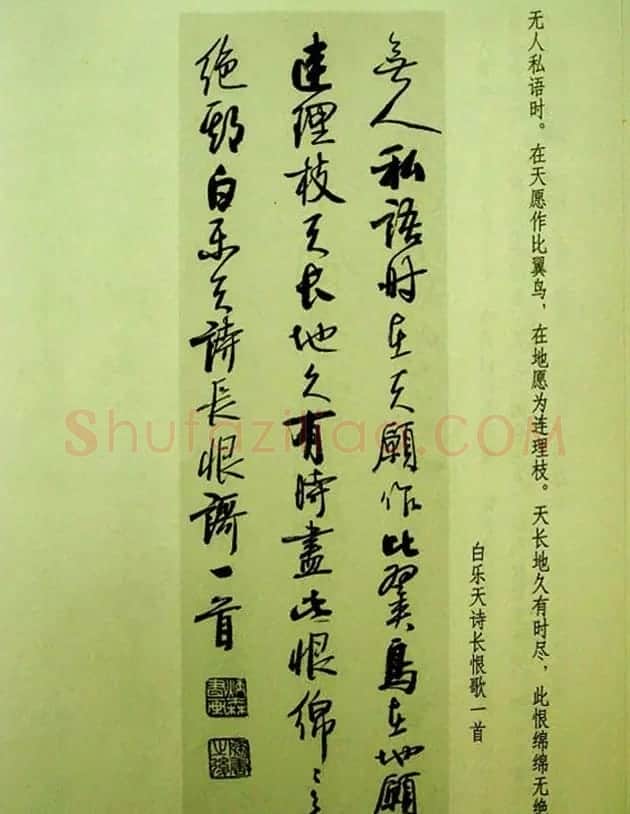 无人私语时。在天愿作比翼鸟，在地愿为连理枝。天长地久有时尽，此恨绵绵无绝
白乐天诗长恨歌一首
無人私語时在天願作比翼鳥在地願
連理枝天长地久有時盡此恨綿〻
绝期白乐天詩長恨謌一首
Shufaziliao.COM